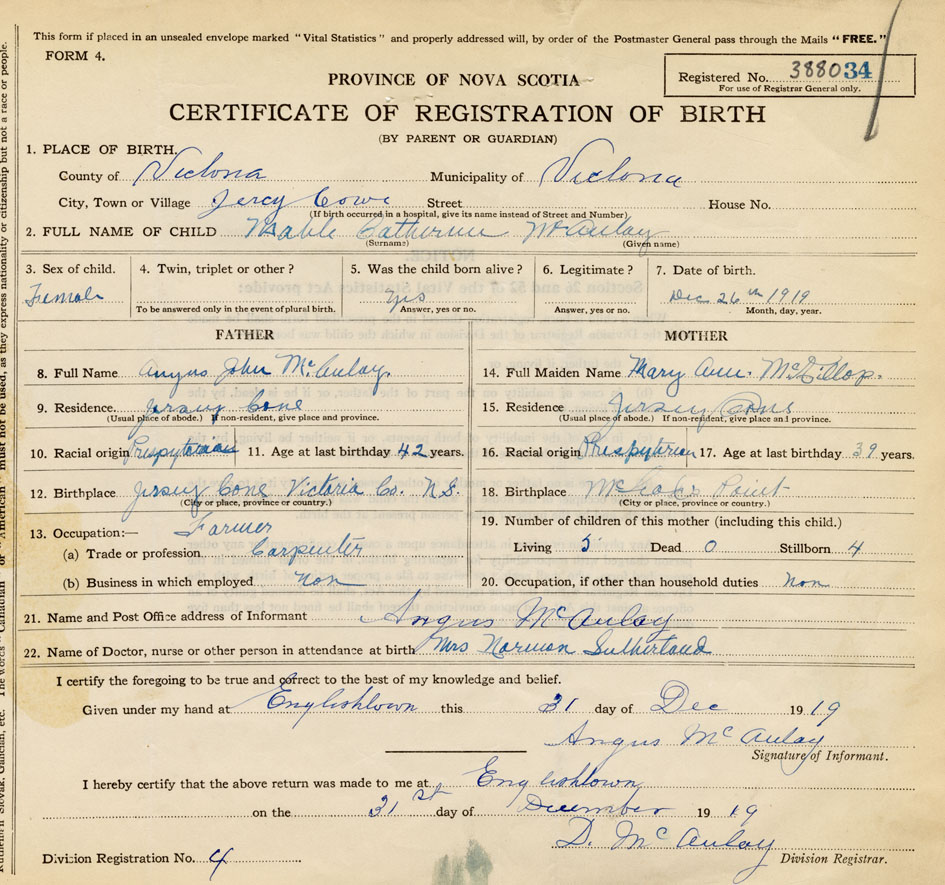 This form if placed in an unsealed envelope marked "Vital Statistics" and properly addressed will, by order of the Postmaster General pass through the Mails "FREE."
FORM 4.
PROVINCE OF NOVA SCOTIA
Registered No. 388034
For use of Registrar General only.
CERTIFICATE OF REGISTRATION OF BIRTH
(BY PARENT OR GUARDIAN)
1. PLACE OF BIRTH.
County of Victoria Municipality of Victoria
City, Town or Village Jercy Cove Street House No.
(If birth occurred in a hospital, give its name instead of Street and Number)
2. FULL NAME OF CHILD Mable Catherine McAulay
(Surname) (Given name)
3. Sex of child. 4. Twin, triplet or other? 5. Was the child born alive? 6. Legitimate? 7. Date of birth.
Female yes Dec 26th 1919
To be answered only in the event of plural birth. Answer, yes or no. Answer, yes or no. Month, day, year.
FATHER MOTHER
8. Full Name Angus John McAulay. 14. Full Maiden Name Mary Ann. McKillop.
9. Residence Jersey Cove 15. Residence Jersey Cove
(Usual place of abode.) If non-resident, give place and province. (Usual place of abode.) If non-resident, give place and province.
10. Racial origin Presbyterian 11. Age at last birthday 42 years. 16. Racial origin Presbyterian 17. Age at last birthday 39 years.
12. Birthplace Jersey Cove Victoria Co. N.S. 18. Birthplace Point
(City or place, province or country.) (City or place, province or country.)
13. Occupation:— Farmer 19. Number of children of this mother (including this child.)
(a) Trade or profession Carpenter Living 5 Dead 0 Stillborn 4
(b) Business in which employed non 20. Occupation, if other than household duties non
21. Name and Post Office address of Informant Angus McAulay
22. Name of Doctor, nurse or other person in attendance at birth Mrs Norman Sutherland
I certify the foregoing to be true and correct to the best of my knowledge and belief.
Given under my hand at Englishtown this 31 day of Dec 1919
Angus McAulay
Signature of Informant.
I hereby certify that the above return was made to me at Englishtown
on the 31st day of December 1919
D. McAulay
Division Registration No. 4 Division Registrar.